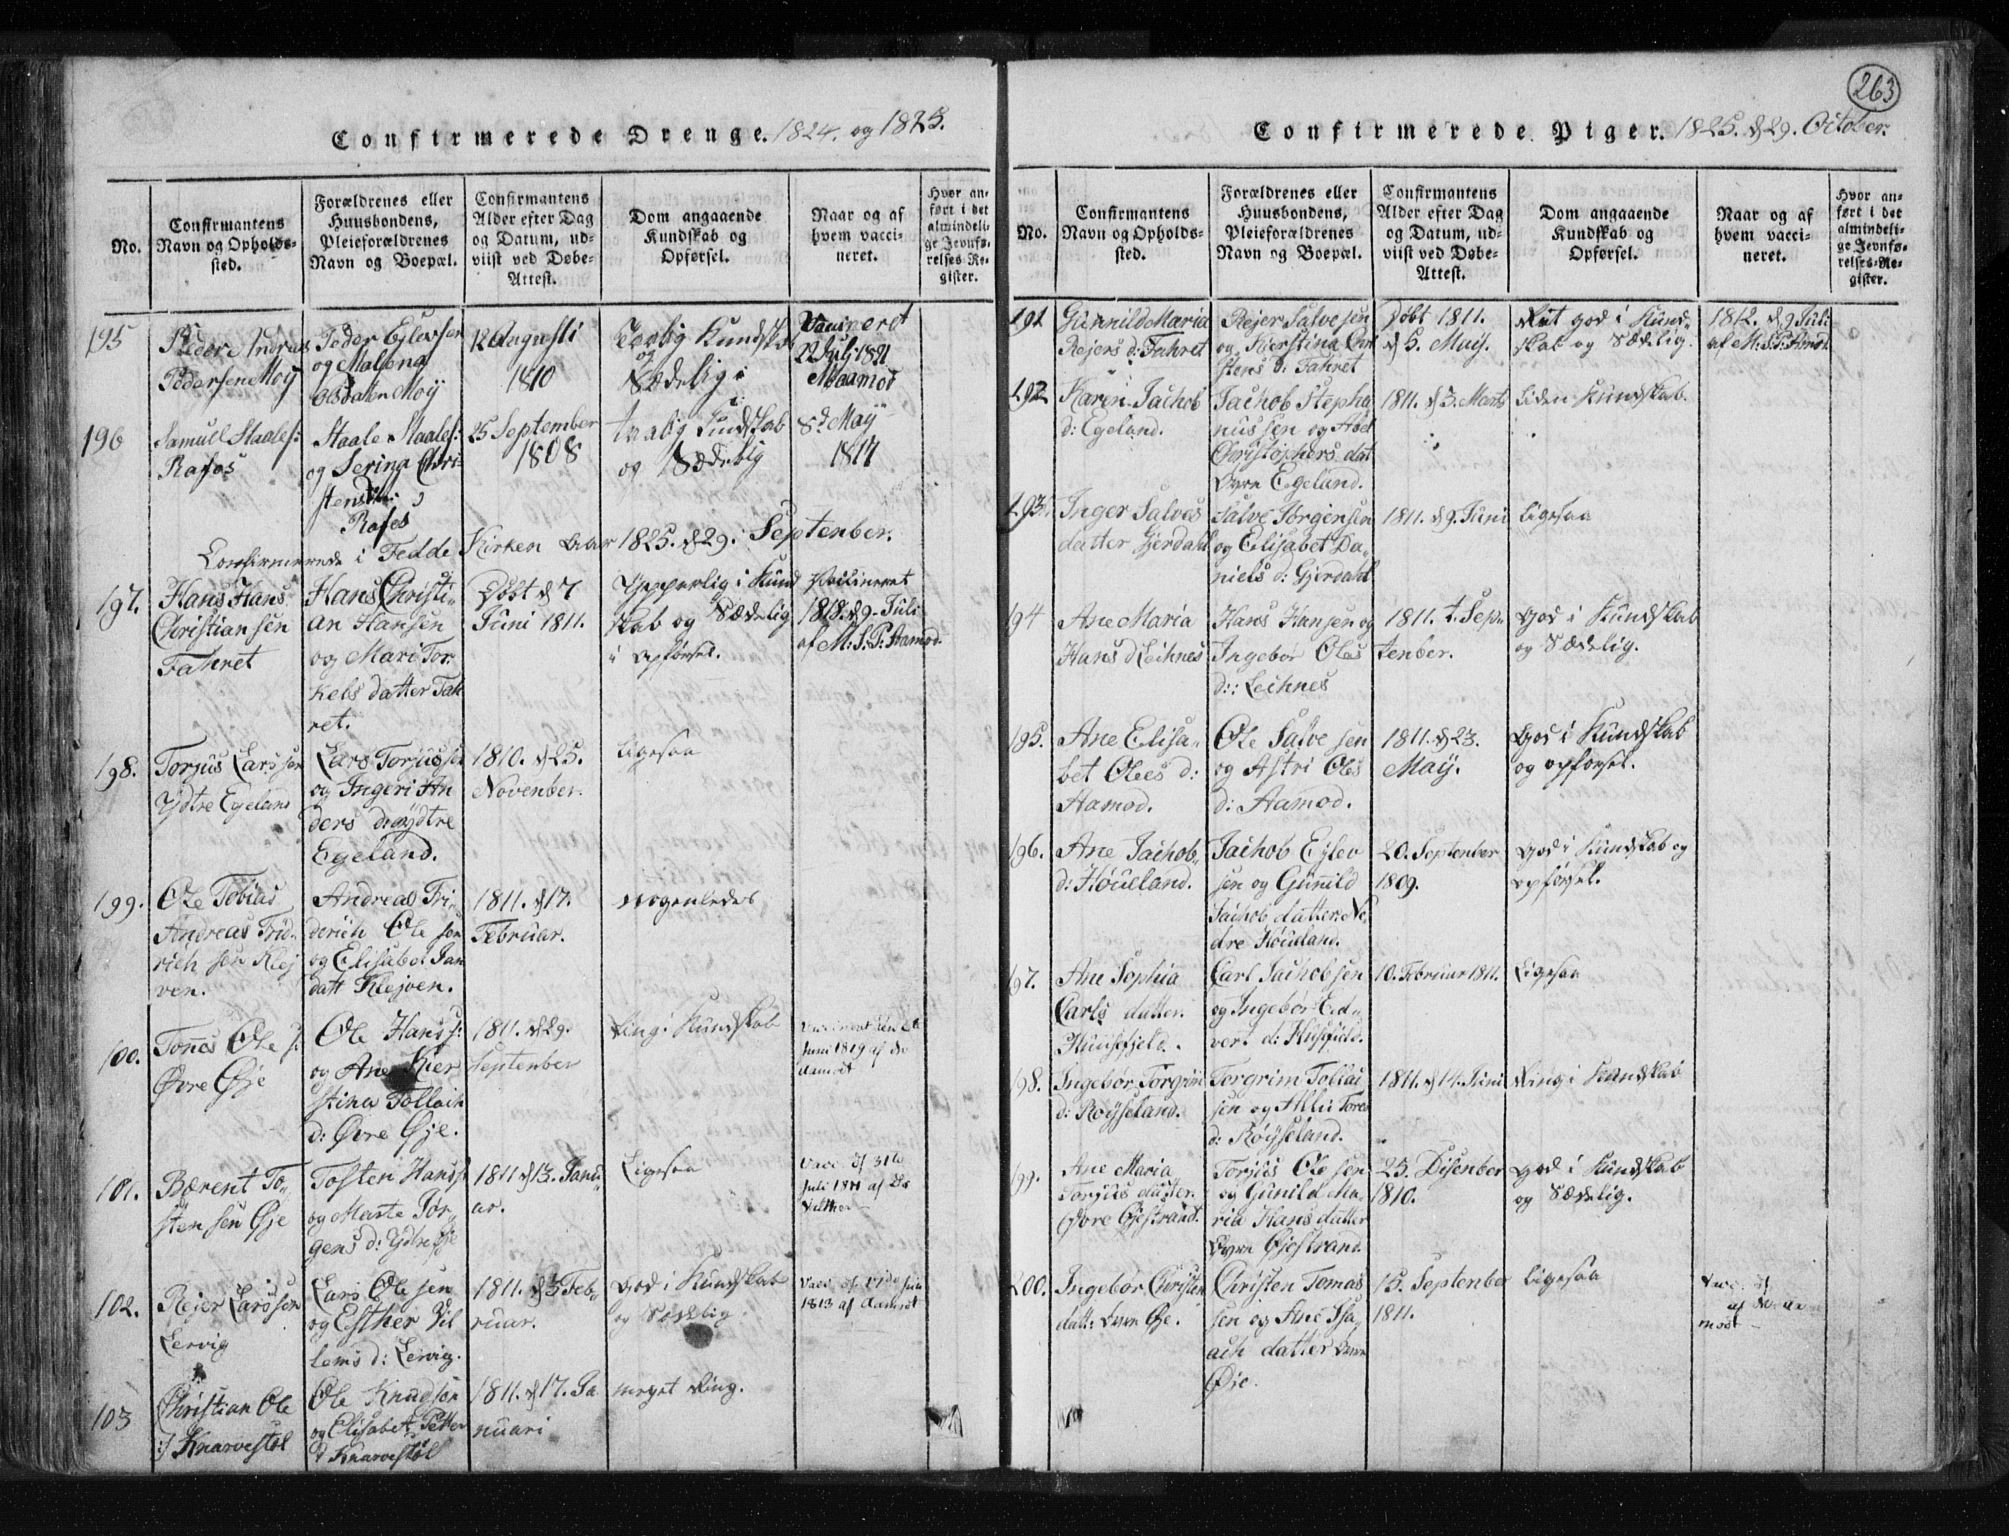 263
Confirmerede Drenge. 1824. og 1825.
No.
Confirmantens
Navn og Opholds-
sted.
Forældrenes eller
Huusbondens,
Pleieforældrenes
Navn og Boepæl.
Confirmantens
Alder efter Dag
og Datum, ud-
viist ved Døbe-
Attest.
Dom angaaende
Kundskab og
Opførsel.
Naar og af
hvem vacci-
neret.
Hvor an-
ført i det
almindeli-
ge Jevnfø-
relses-Re-
gister.
195
Peder Andreas
Pedersen Moÿ
Peder Ejlevsen
og Malena
Olsdatter Moÿ
12 Augusti
1810
Taalig Kundskab
og
Sædelig
Vaccineret
1821
Aamod
196
Samuel Staales:
Rafos
Staale Staales:
og Serina Chri-
stens
Rafos
25 September
1808
taalig Kundskab
og Sædelig
8d Maÿ
1817
Confirmerede i Fedde Kirken Aar 1825. d 29. September.
197.
Hans Hans
Christiansen
Fahret
Hans Christi-
an Hansen
og Mari Tor-
kels datter Fah
ret.
Døbt d 7
Juni 1811.
Ypperlig i Kund
skab og Sædelig
i opførsel.
Vaccineret
1818. d 9. Juli
af M. S. P. Aamod.
198.
Torjus Larssen
Ydtre Egeland
Lars Torjussen
og Ingeri An
ders d: ydtre
Egeland.
1810. d 25.
November.
Ligesaa
199.
Ole Tobias
Andreas Frid-
rich sen Klej
ven.
Andreas Fri-
derich Ole sen
og Elisabet Jan
datt Klejven.
1811. d 17.
Februar.
nogenledes
100.
Tønes Ole s:
Øvre Øje
Ole Hans s:
og Ane Kier
stina Tollach
d: Øvre Øje.
1811. d 29.
September
Ring i Kundskab
Juni 1819 af
Aamodt
101.
Bærent To-
sten sen Øje
Tosten Hans s
og Marte Jør-
gens d: Ydtre Øje
1811 d 13. Janu-
ar.
Ligesaa
Vacc. d 31te
Juli 1811 af
102.
Rejer Larssen
Lervig
Lars Ole sen
og Esther Vil
lems d: Lervig.
1811. d 3 Feb-
ruar.
God i Kundskab
og Sædelig.
Vacc. d
1813 af Aamodt
103
Christian Ole
s: Knarvestøl
Ole Knudsen
og Elisabet Petter
d Knarvestøl
1811. d 17. Ja
nuari
meget Ring.
Confirmerede Piger. 1825. d 29. October.
No.
Confirmantens
Navn og Opholds-
sted.
Forældrenes eller
Huusbondens,
Pleieforældrenes
Navn og Boepæl.
Confirmantens
Alder efter Dag
og Datum, ud-
viist ved Døbe-
Attest.
Dom angaaende
Kundskab og
Opførsel.
Naar og af
hvem vacci-
neret.
Hvor an-
ført i det
almindeli-
ge Jevnfø-
relses-Re-
gister.
191
Gunnild Maria
Rejers d: Fahret
Rejer Salvesen
og Kierstina Chri
stens d: Fahret
Døbt 1811.
d 5. Maÿ.
god i Kund-
skab og Sædelig.
1812. d 9 Juli
af M. S. P. Aamod.
192
Karen Jachob
d: Egeland.
Jachob Stepha
nussen og Abel
Christophers dat
Øvre Egeland.
1811. d 3. Marts
Liden Kundskab.
193.
Inger Salves
datter Gjerdahl
Salve Jørgensen
og Elisabet Da-
niels d: Gjerdahl
1811. d 9. Juni
Ligesaa
194
Ane Maria
Hans d Leihnes
Hans Hansen og
Ingebor Oles
d: Leihnes
1811. 1. Sep-
tember.
God i Kundskab
og Sædelig.
195.
Ane Elisa-
bet Oles d:
Aamod.
Ole Salve sen
og Astri Oles
d: Aamod.
1811. d 23.
Maÿ.
God i Kundskab
og opførsel.
196.
Ane Jachob-
d: Høueland.
Jachob Ejlev
sen og Gunild
Jachob datter Ne
dre Høueland.
20. September
1809.
God i Kundskab og
opførsel.
197.
Ane Sophia
Carls datter.
Huusefjeld.
Carl Jachobsen
og Ingebor Ed-
vert d: Husefield.
10. Februar 1811.
Ligesaa
198.
Ingebor Torgrim
d: Røÿseland.
Torgrim Tollai
sen og Allis Tores
d: Røÿseland.
1811. d 14. Juni
Ring i Kundskab
199.
Ane Maria
Torjus datter.
Øvre Øjestrand.
Torjus Ole sen
og Gunild Ma-
ria Hans datter
Øvre Øjestrand.
25. Disember
1810.
God i Kundskab
og Sædelig.
200.
Ingebor Christen
datt: Øvre Øje.
Christen Tomas
sen og Ane Isa-
ach datter Øvre
Øje.
15. September
1811.
Ligesaa
Vacc. d
af